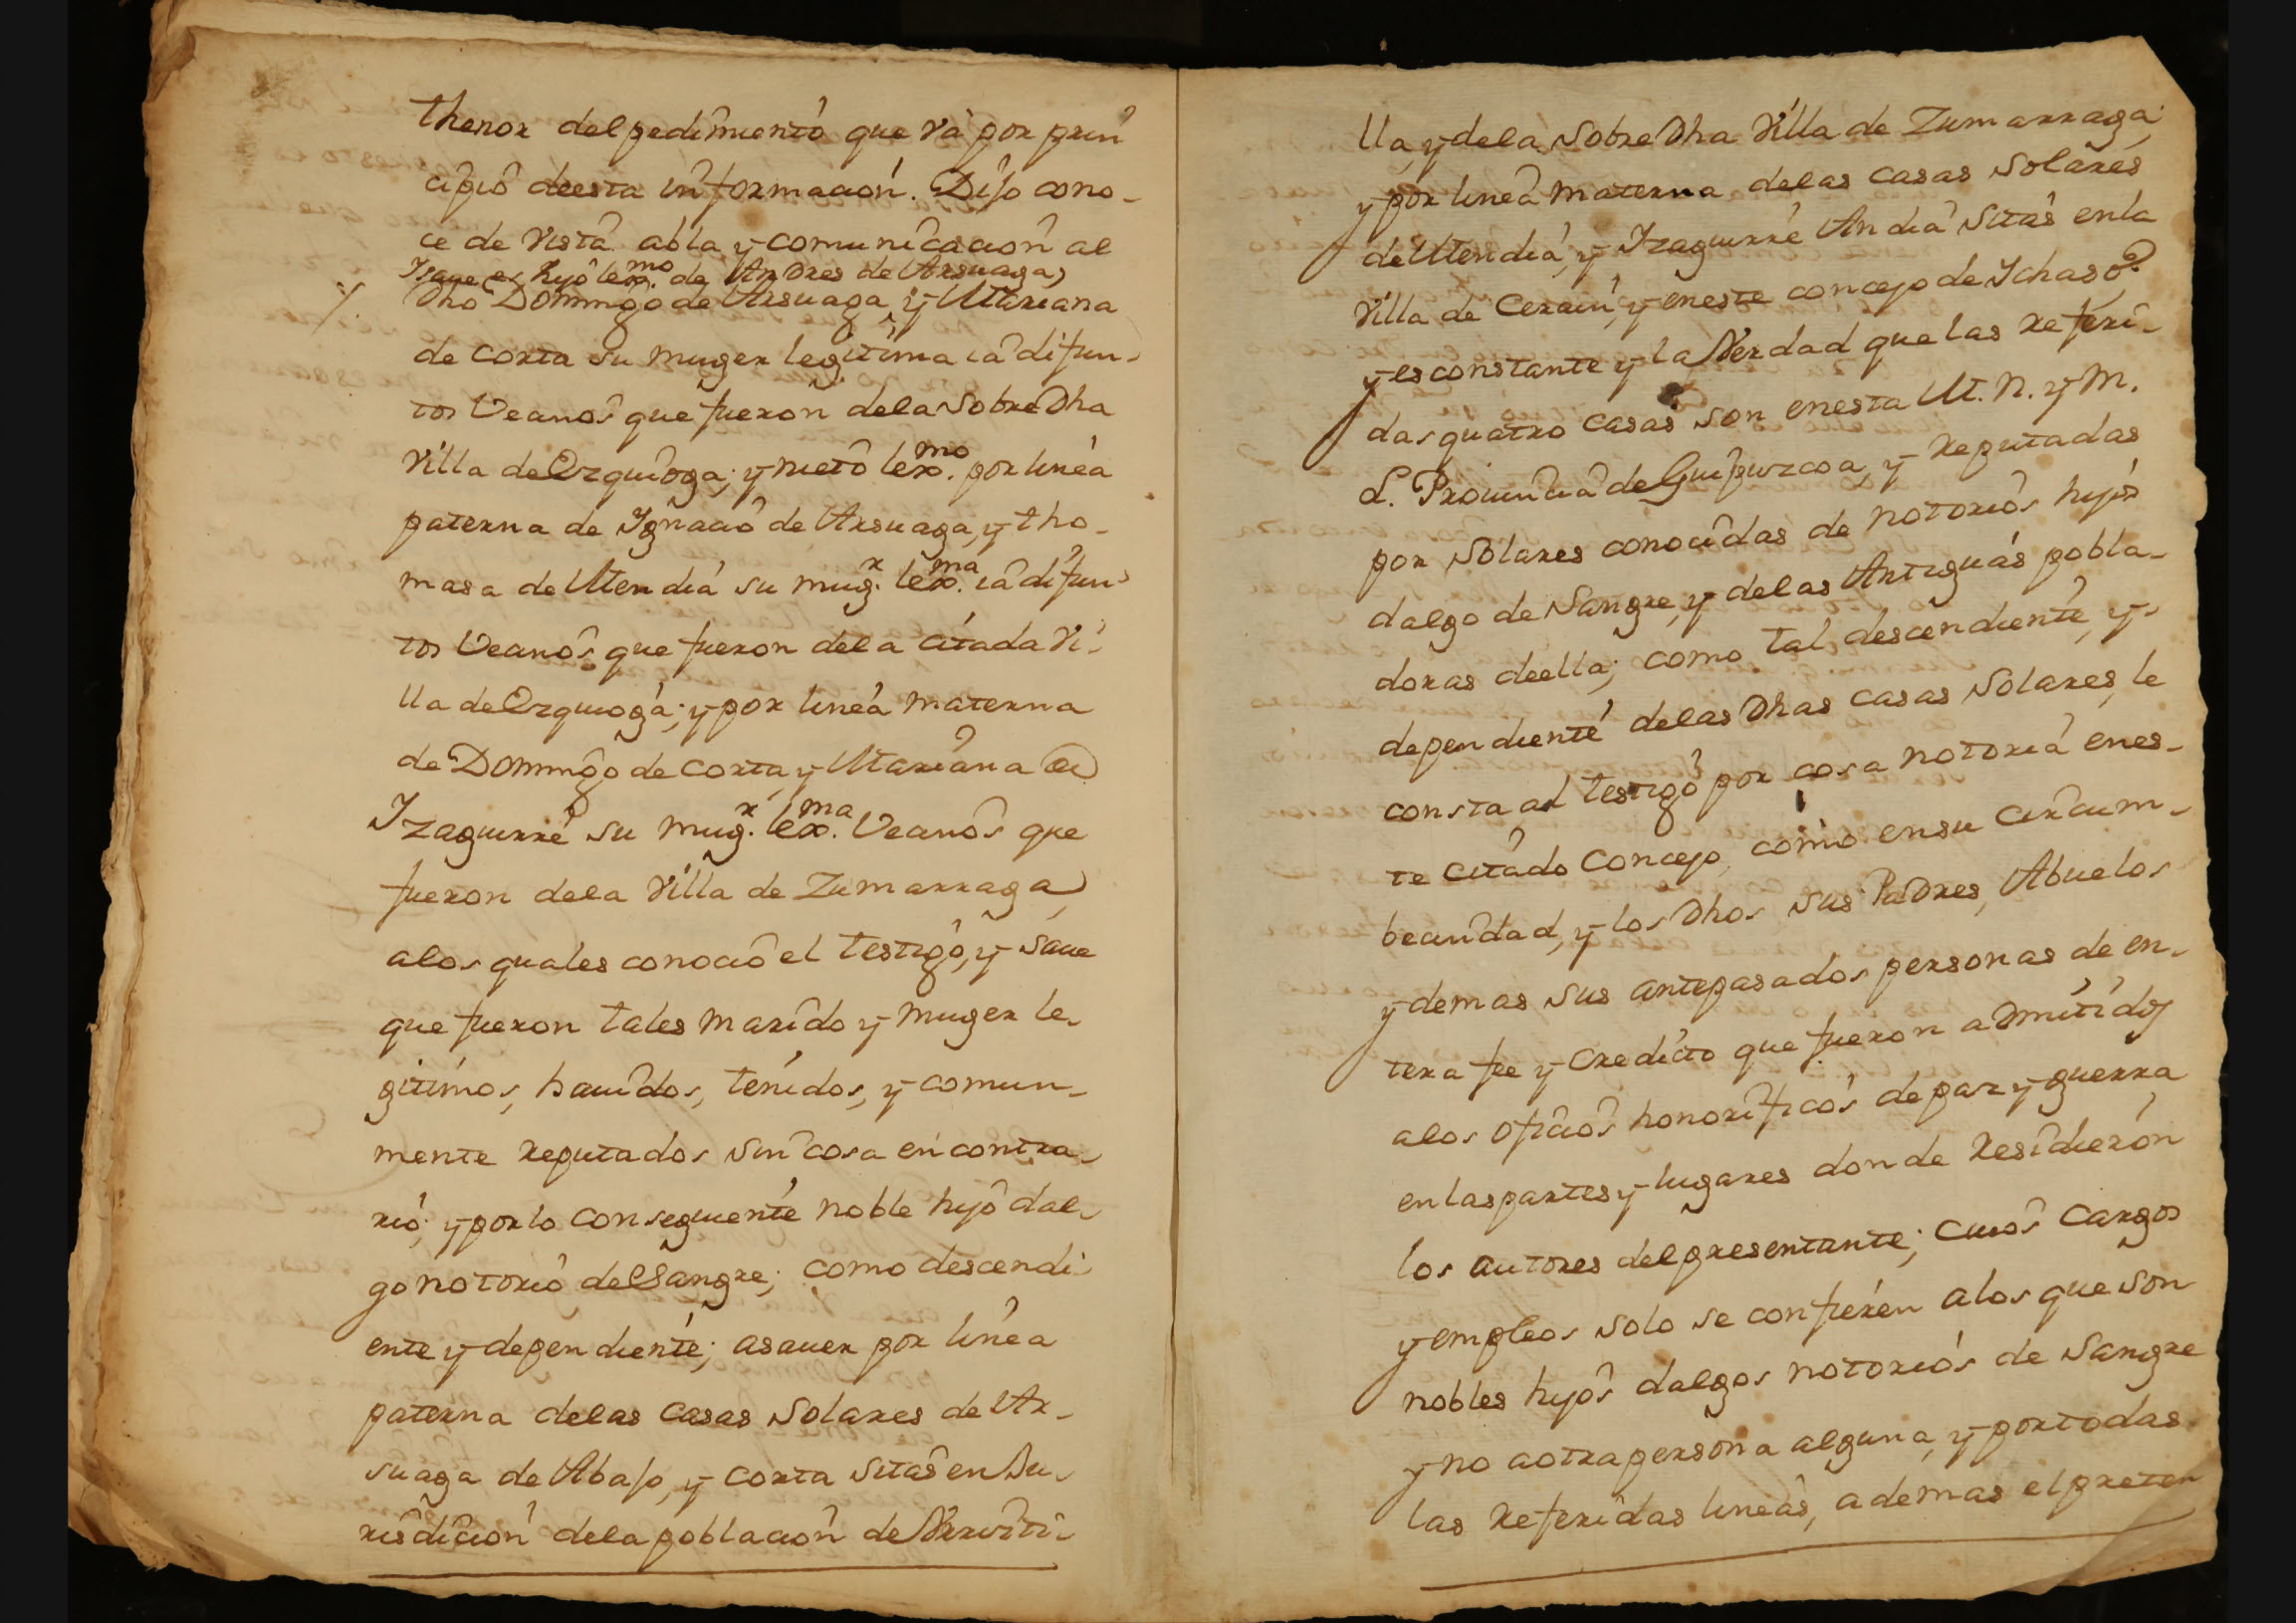 thenor del pedimiento que vá por prin
cipio de esta informacion. Dijo cono-
ce de vista abla, y comunicacion al
Ysaue es hijo lexmo. de Andres de Arsuaga,
Dho Domingo de Arsuaga, y Mariana
de Corta su muger legitima ia difun-
tos Vecinos que fueron de la Sobre Dha
Villa de Ezquioga; y nieto lexmo. por linea
paterna de Ygnacio de Arsuaga, y tho-
masa de Mendia su mugr. lexma. ia difun-
tos Vecinos que fueron de la citada Vi-
lla de Ezquioga; y por linea materna
de Domingo de Corta, y Mariana de
Yzaguirre su mugr. lexma. Vecinos que
fueron de la Villa de Zumarraga,
a los quales conocio el testigo, y saue
que fueron tales marido y muger le-
gitimos, hauidos, tenidos, y comun-
mente reputados sin cosa en contra-
rio; y por lo conseguiente noble hijo dal-
go notorio de Sangre; como descendi-
ente y dependiente; asauer por linea
paterna de las casas Solares de Ar-
suaga de Abajo, y Corta sitas en Ju-
risdicion de la poblacion de Arriti-
lla, y de la Sobre Dha Villa de Zumarraga;
y por linea materna de las casas Solares
de Mendia, y Yzaguirre Andia Sitas en la
Villa de Cerain, y en este concejo de Ychaso:
y es constante y la Verdad que las referi-
das quatro casas son en esta M. N. y M.
L. Prouincia de Guipuzcoa, y reputadas
por Solares conocidas de notorios hijos
dalgo de Sangre, y de las Antiguas pobla-
doras de ella; como tal descendiente, y
dependiente de las Dhas casas Solares, le
consta al testigo por cosa notoria en es-
te citado Concejo, como en su circum-
becindad, y los Dhos sus Padres, Abuelos
y demas sus antepasados personas de en-
tera fee y credicto que fueron admitidos
a los oficios honorificos de paz y guerra,
en las partes y lugares donde residieron
los autores del presentante; cuios cargos
y empleos solo se confieren a los que son
nobles hijos dalgos notorios de Sangre
y no a otra persona alguna, y por todas
las referidas lineas, ademas el preten